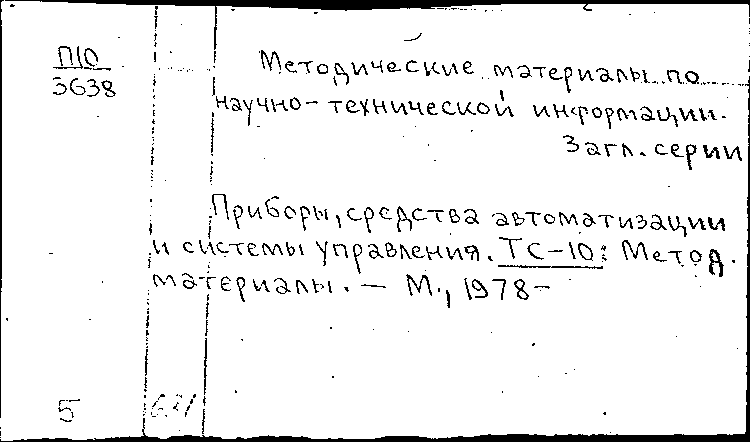 П10
3638
Методические материалы по
научно-технической информации.
Загл. серии
Приборы, средства автоматизации
и системы управления. ТС-10: Метод.
материалы. — М., 1978-
5